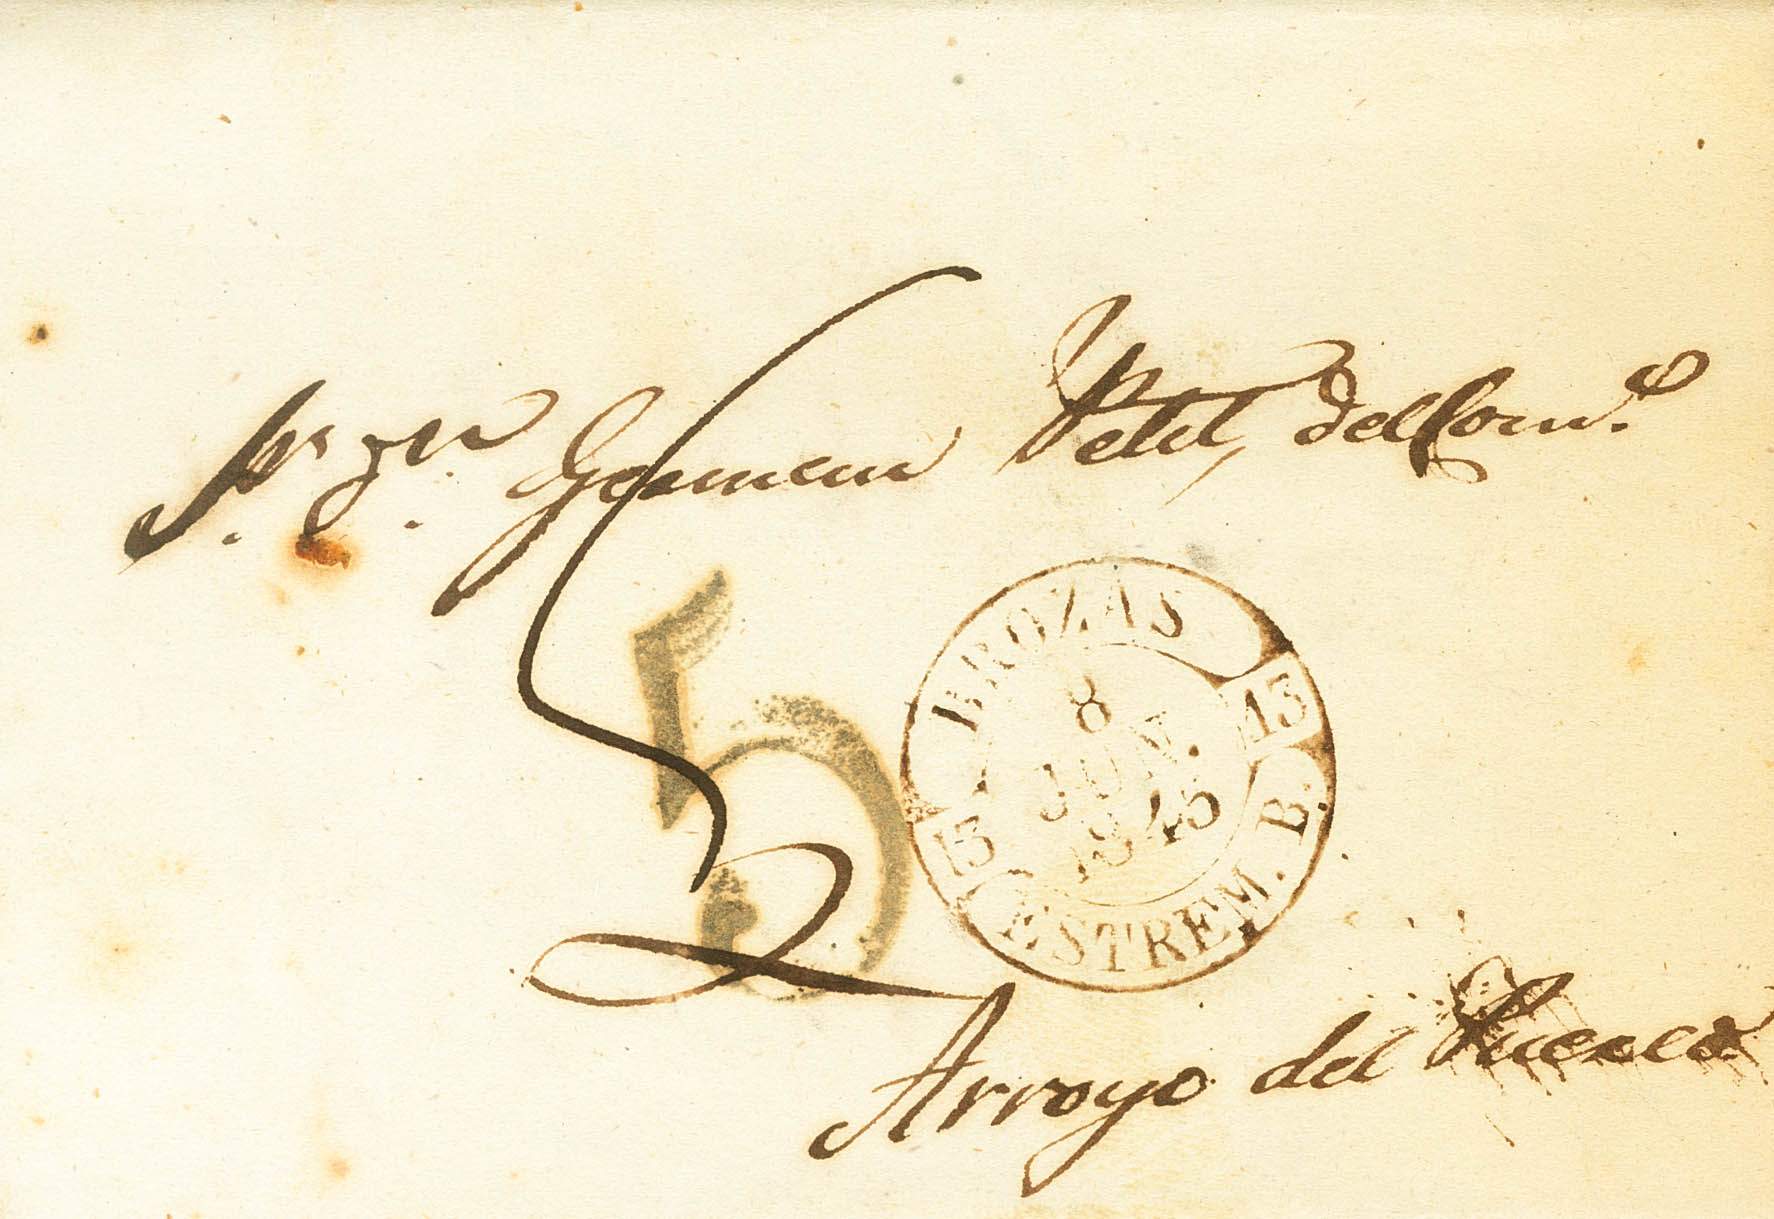 German Petit, del Com.º
5
BROZAS
13
8
JUN.
1845
13
ESTREM. B.
Arroyo del Puerco